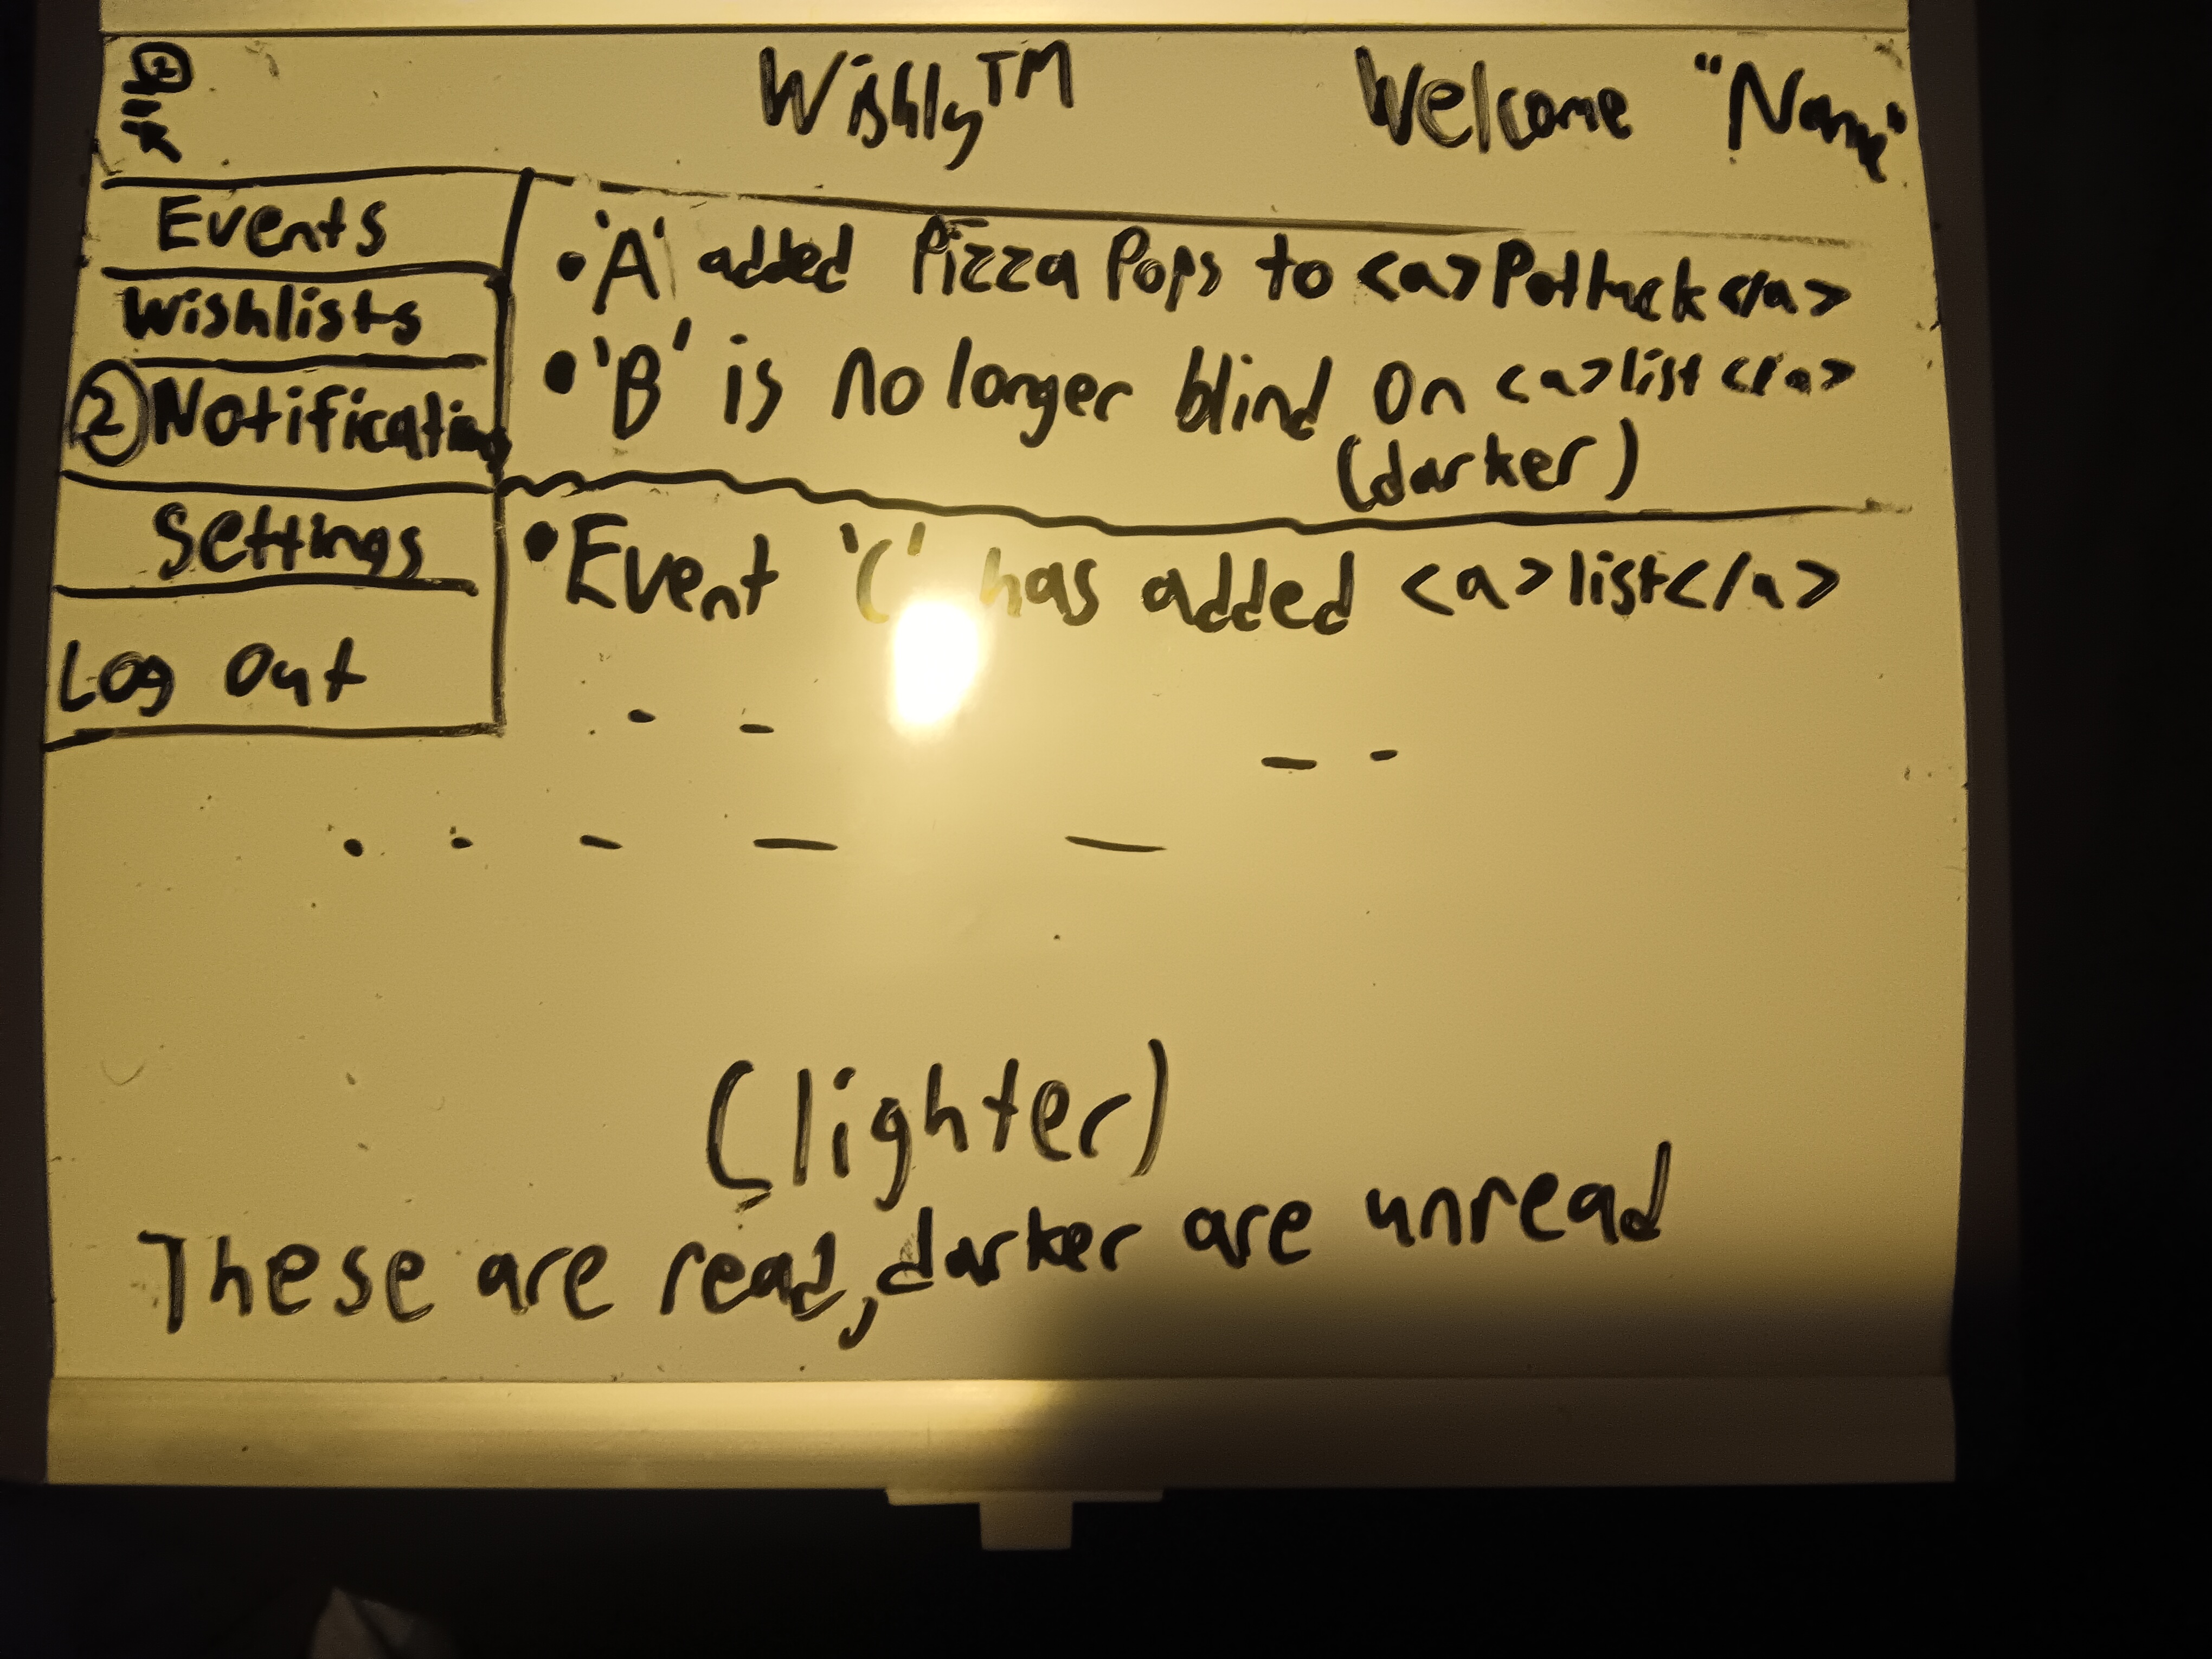 ② Wishly™ Welcome "Name"
Events
Wishlists
② Notifications
Settings
Log Out
• 'A' added Pizza Pops to <a>Potluck</a>
• 'B' is no longer blind on <a>list</a>
(darker)
• Event 'C' has added <a>list</a>
(lighter)
These are read, darker are unread